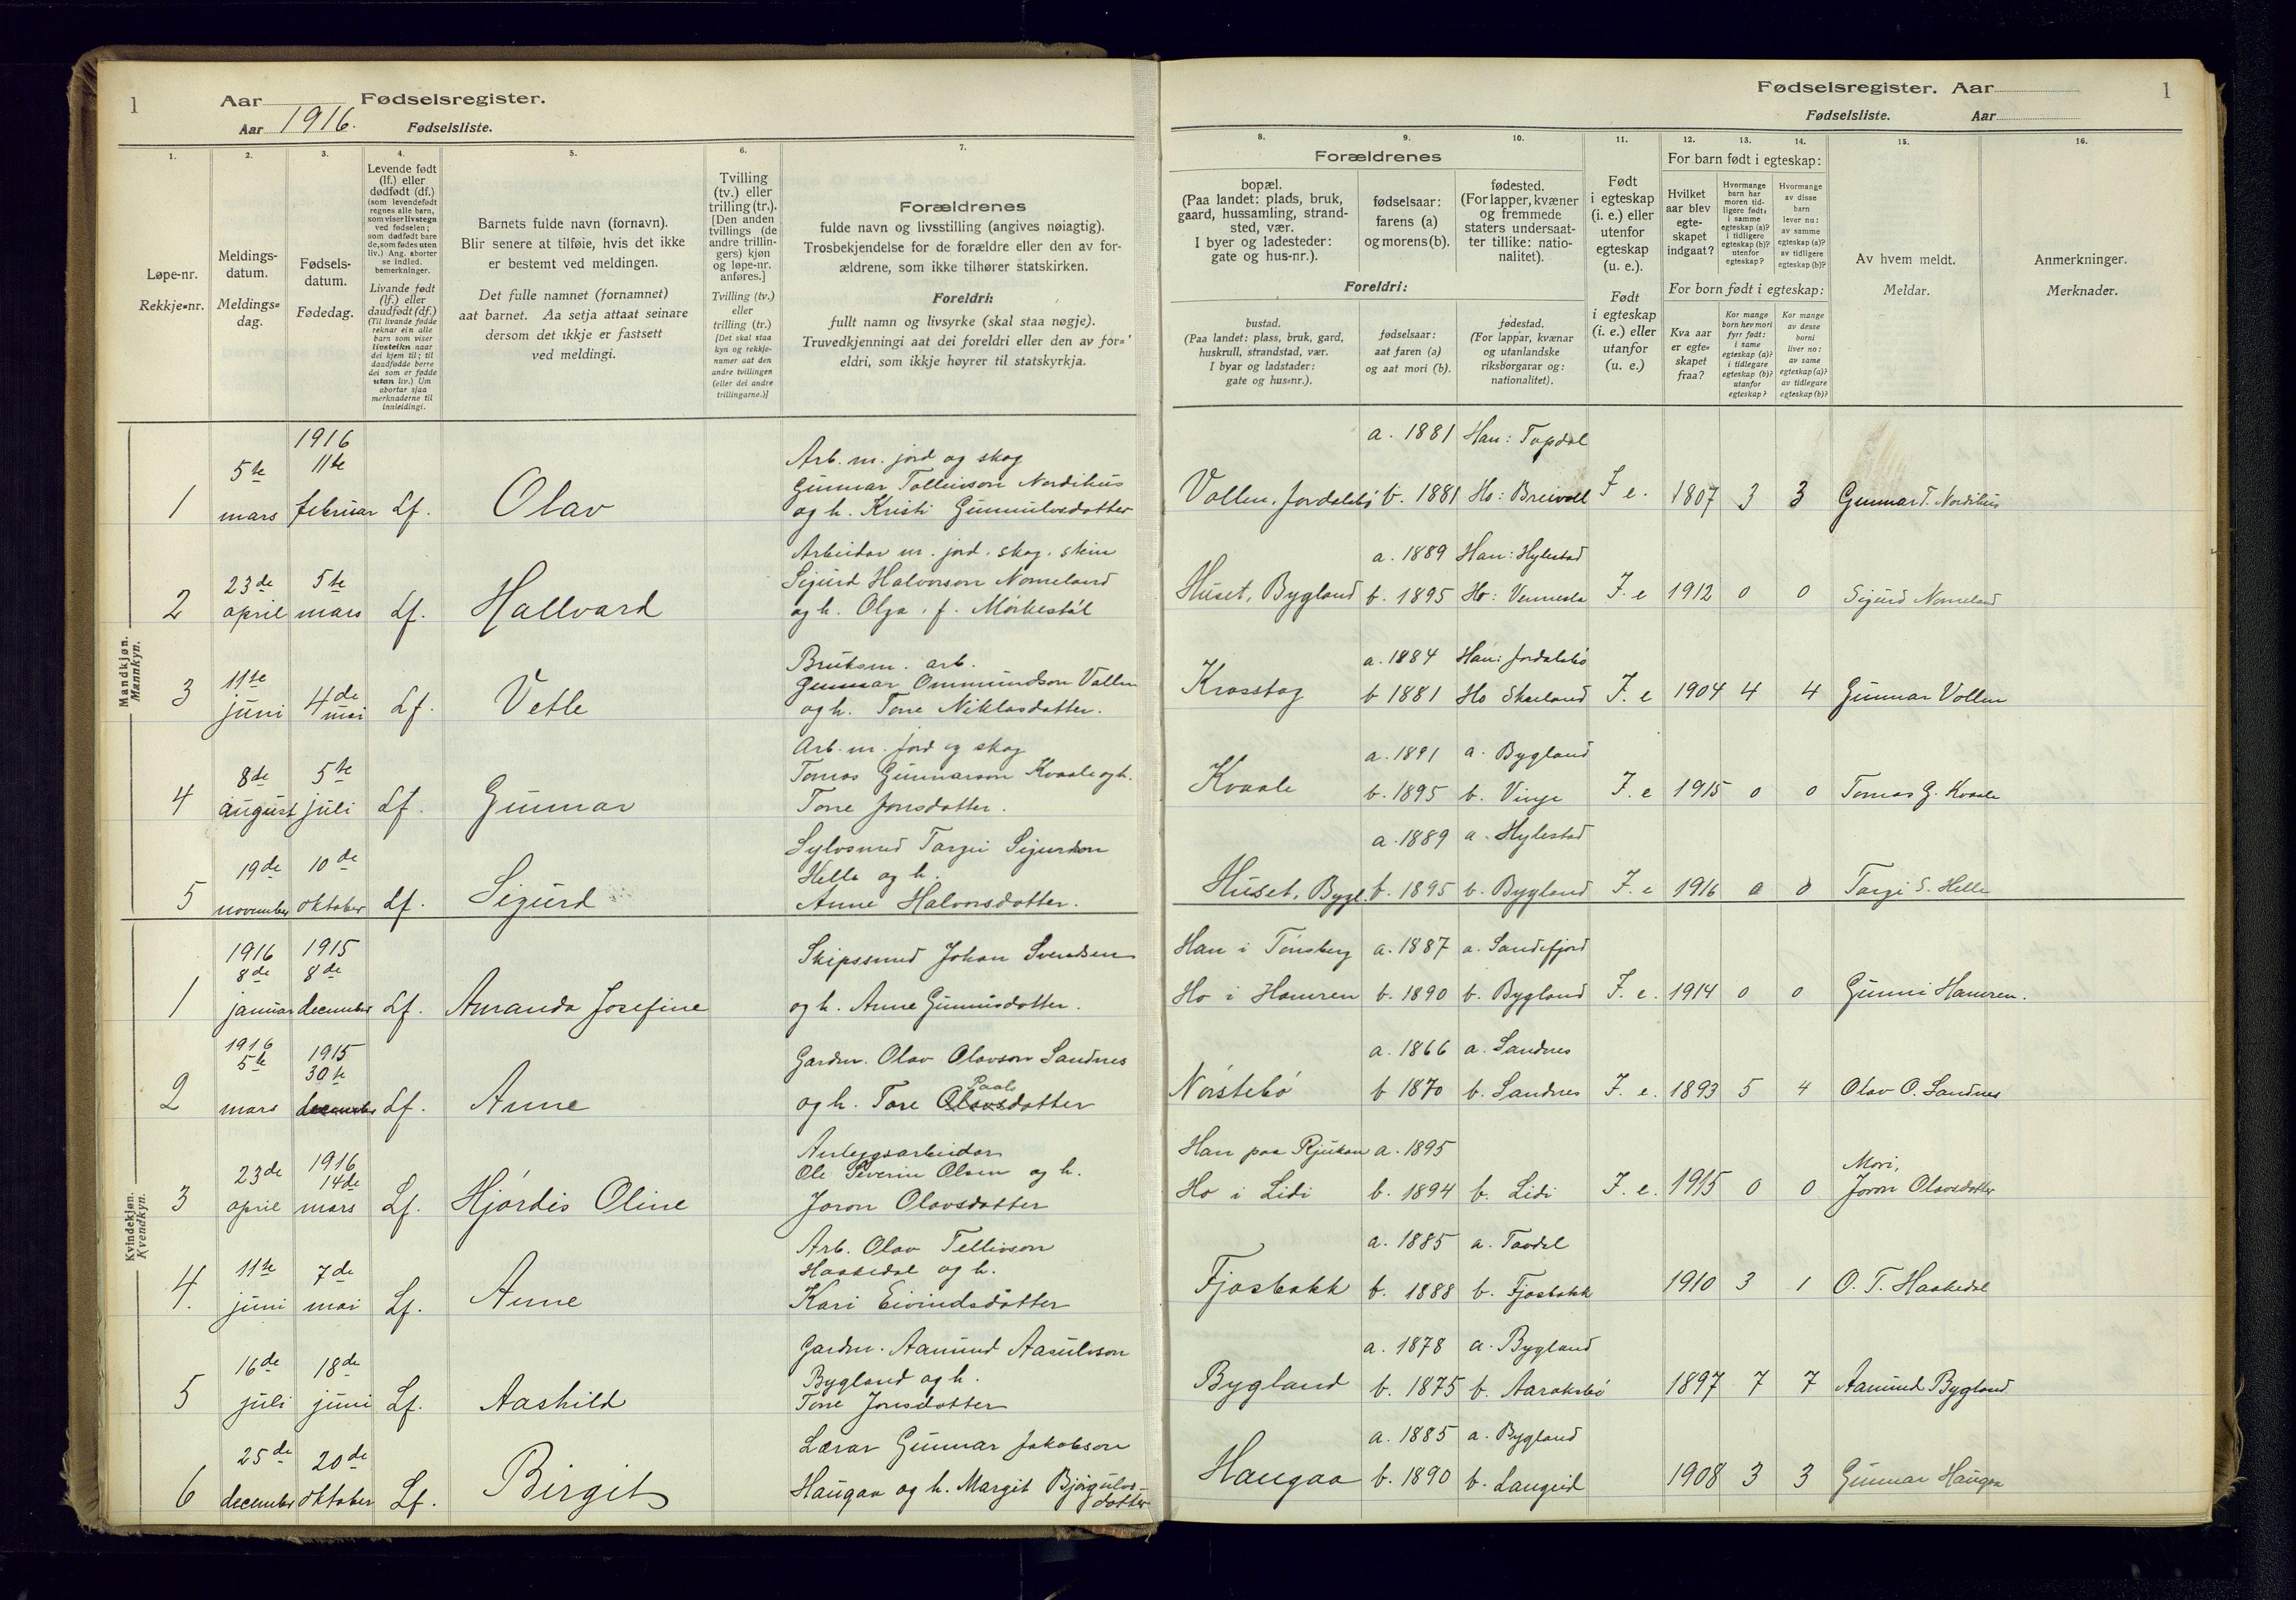 1 Aar Fødselsregister.
Aar 1916. Fødselsliste.
Fødselsregister. Aar 1
Fødselsliste. Aar
1. 2. 3. 4. 5. 6. 7.
Løpe-nr.
Rekkje-nr.
Meldings-
datum.
Meldings-
dag.
Fødsels-
datum.
Fødedag.
Levende født
(lf.) eller
dødfødt (df.)
(som levendefødt
regnes alle barn,
som viser livstegn
ved fødselen;
som dødfødt bare
de, som fødes uten
liv.) Ang. aborter
se indled.
bemerkninger.
Livande født
(lf.) eller
daudfødt (df.)
(Til livande fødde
reknar ein alle
barn som viser
livsteikn naar
dei kjem til; til
daudfødde berre
dei som er fødde
utan liv.) Um
abortar sjaa
merknaderne til
innleidingi.
Barnets fulde navn (fornavn).
Blir senere at tilføie, hvis det ikke
er bestemt ved meldingen.
Det fulle namnet (fornamnet)
aat barnet. Aa setja attaat seinare
dersom det ikkje er fastsett
ved meldingi.
Tvilling
(tv.) eller
trilling (tr.).
[Den anden
tvillings (de
andre trillin-
gers) kjøn
og løpe-nr.
anføres.]
Tvilling (tv.)
eller
trilling (tr.)
[Det skal staa
kyn og rekkje-
numer aat den
andre tvillingen
(eller dei andre
trillingarne.)]
Forældrenes
fulde navn og livsstilling (angives nøiagtig).
Trosbekjendelse for de forældre eller den av for-
ældrene, som ikke tilhører statskirken.
Foreldri:
fullt namn og livsyrke (skal staa nøgje).
Truvedkjenningi aat dei foreldri eller den av for-
eldri, som ikkje høyrer til statskyrkja.
8. 9. 10. 11. 12. 13. 14. 15. 16.
Forældrenes
bopæl.
(Paa landet: plads, bruk,
gaard, hussamling, strand-
sted, vær.
I byer og ladesteder:
gate og hus-nr.).
fødselsaar:
farens (a)
og morens (b).
fødested.
(For lapper, kvæner
og fremmede
staters undersaat-
ter tillike: natio-
nalitet).
Foreldri:
bustad.
(Paa landet: plass, bruk, gard,
huskrull, strandstad, vær.
I byar og ladstader:
gate og hus-nr.).
fødselsaar:
aat faren (a)
og aat mori (b).
fødestad.
(For lappar, kvænar
og utanlandske
riksborgarar og:
nationalitet).
Født
i egteskap
(i. e.) eller
utenfor
egteskap
(u. e.).
Født
i egteskap
(i. e.) eller
utanfor
(u. e.)
For barn født i egteskap:
Hvilket
aar blev
egte-
skapet
indgaat?
Hvormange
barn har
moren tid-
ligere født:
i samme
egteskap (a)?
i tidligere
egteskap (b)?
utenfor
egteskap?
Hvormange
av disse
barn
lever nu:
av samme
egteskap (a)?
av tidligere
egteskap (b)?
For born født i egteskap:
Kva aar
er egte-
skapet
fraa?
Kor mange
born hev mori
fyrr født:
i same
egteskap (a)?
i tidlegare
egteskap (b)?
utanfor
egteskap?
Kor mange
av desse
borni
liver no:
av same
egteskap (a)?
av tidlegare
egteskap (b)?
Av hvem meldt.
Meldar.
Anmerkninger.
Merknader.
Mandkjøn.
Mannkyn.
1916
5te 11te Arb. m. jord og skog a. 1881 Han: Topdal
Gunnar Tollivson Nordihus
1 mars februar Lf. Olav og h. Kristi Gunnulvsdotter Vollen, Jordalsbö b. 1881 Ho: Breivoll I e. 1807 3 3 Gunnar T. Nordihus
Arbeidar m. jord. skog. stein a. 1889 Han: Hylestad
23de 5te Sigurd Halvorson Nomeland
2 april mars Lf. Hallvard og h. Olga, f. Mörkestöl Huset, Bygland b. 1895 Ho: Vennesla I. e 1912 0 0 Sigurd Nomeland
Bruksm. arb. a. 1884 Han: Jordalsbö
11te 4de Gunnar Ommundson Vollen
3 juni mai Lf. Vetle og h. Tone Niklasdotter. Krosstog b 1881 Ho Skreland I. e 1904 4 4 Gunnar Vollen
Arb. m. jord og skog a. 1891 a. Bygland
8de 5te Tomas Gunnarson Kvaale og h.
4 august juli Lf. Gunnar Tone Jonsdotter. Kvaale b. 1895 b. Vinje I. e 1915 0 0 Tomas G. Kvaale
Sylvsmed Targei Sigurdson a. 1889 a. Hylestad
19de 10de Helle og h.
5 november oktober Lf. Sigurd Anne Halvorsdotter. Huset, Bygl. b. 1895 b. Bygland I. e 1916 0 0 Targi S. Helle
Kvindekjøn.
Kvendkyn.
1916 1915 Skipssmed Johan Svendsen Han i Tönsberg a. 1887 a. Sandefjord
8de 8de
1 januar december Lf. Amanda Josefine og h. Anne Gunnusdotter. Ho i Hamren b. 1890 b. Bygland I. e. 1914 0 0 Gunni Hamren.
1916 1915
5te 30te Gardm. Olav Olavson Sandnes a. 1866 a. Sandnes
Paals
2 mars december Lf. Anne og h. Tore Olavsdotter Nörstebö b 1870 b. Sandnes I. e. 1893 5 4 Olav O. Sandnes
1916 Anleggsarbeidar Han paa Rjukan a. 1895
23de 14de Ole Severin Olsen og h. Mori,
3 april mars Lf. Hjördis Oline Joron Olavsdotter Ho i Lidi b. 1894 b. Lidi I. e. 1915 0 0 Joron Olavsdotter
Arb. Olav Tellivson a. 1885 a. Tovdal
11te 7de Haakedal og h.
4. juni mai Lf. Anne Kari Eivindsdotter Fjosbakk b. 1888 b. Fjosbakk 1910 3 1 O. T. Haakedal
Gardm. Aamund Aasulvson a. 1878 a. Bygland
16de 18de Bygland og h.
5 juli juni Lf. Aashild Tone Jonsdotter Bygland b. 1875 b. Aaraksbö 1897 7 7 Aamund Bygland
25de 20de Lærar Gunnar Jakobson a. 1885 a. Bygland
6 december oktober Lf. Birgit Haugaa og h. Margit Björgulvs-
dotter Haugaa b. 1890 b. Langeid 1908 3 3 Gunnar Haugaa